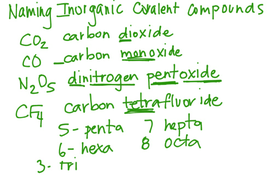 Naming Inorganic Covalent Compounds
CO₂ carbon dioxide
CO carbon monoxide
N₂O₅ dinitrogen pentoxide
CF₄ carbon tetrafluoride
5- penta 7 hepta
6- hexa 8 octa
3- tri